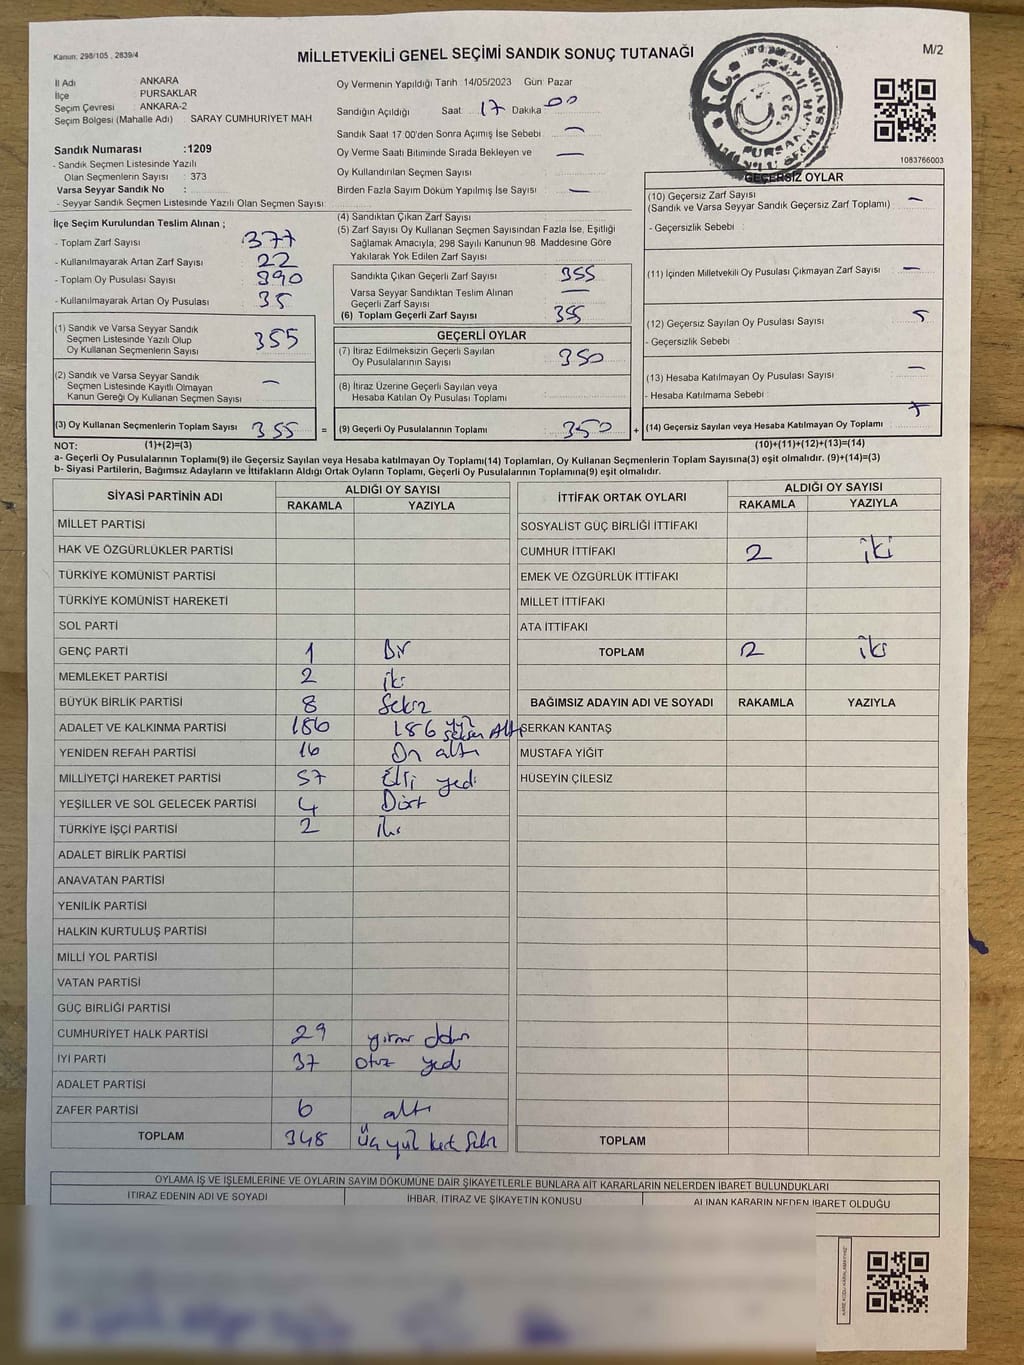 Kanun: 298/105 , 2839/4
MİLLETVEKİLİ GENEL SEÇİMİ SANDIK SONUÇ TUTANAĞI
M/2
İl Adı : ANKARA
İlçe : PURSAKLAR
Seçim Çevresi : ANKARA-2
Seçim Bölgesi (Mahalle Adı) : SARAY CUMHURİYET MAH
Sandık Numarası :1209
- Sandık Seçmen Listesinde Yazılı
Olan Seçmenlerin Sayısı : 373
Varsa Seyyar Sandık No :
- Seyyar Sandık Seçmen Listesinde Yazılı Olan Seçmen Sayısı:
Oy Vermenin Yapıldığı Tarih 14/05/2023 Gün: Pazar
Sandığın Açıldığı Saat: 17 Dakika 00
Sandık Saat 17:00'den Sonra Açımış İse Sebebi : —
Oy Verme Saati Bitiminde Sırada Bekleyen ve —
Oy Kullandırılan Seçmen Sayısı
Birden Fazla Sayım Döküm Yapılmış İse Sayısı : —
T.C.
1083766003
İlçe Seçim Kurulundan Teslim Alınan ;
- Toplam Zarf Sayısı : 377
- Kullanılmayarak Artan Zarf Sayısı : 22
- Toplam Oy Pusulası Sayısı : 390
- Kullanılmayarak Artan Oy Pusulası : 35
(1) Sandık ve Varsa Seyyar Sandık
Seçmen Listesinde Yazılı Olup
Oy Kullanan Seçmenlerin Sayısı : 355
(2) Sandık ve Varsa Seyyar Sandık
Seçmen Listesinde Kayıtlı Olmayan
Kanun Gereği Oy Kullanan Seçmen Sayısı : —
(3) Oy Kullanan Seçmenlerin Toplam Sayısı : 355 =
(4) Sandıktan Çıkan Zarf Sayısı :
(5) Zarf Sayısı Oy Kullanan Seçmen Sayısından Fazla İse, Eşitliği
Sağlamak Amacıyla, 298 Sayılı Kanunun 98. Maddesine Göre
Yakılarak Yok Edilen Zarf Sayısı :
Sandıkta Çıkan Geçerli Zarf Sayısı : 355
Varsa Seyyar Sandıktan Teslim Alınan —
Geçerli Zarf Sayısı
(6) Toplam Geçerli Zarf Sayısı : 355
GEÇERLİ OYLAR
(7) İtiraz Edilmeksizin Geçerli Sayılan
Oy Pusulalarının Sayısı : 350
(8) İtiraz Üzerine Geçerli Sayılan veya
Hesaba Katılan Oy Pusulası Toplamı :
(9) Geçerli Oy Pusulalarının Toplamı : 350 +
GEÇERSİZ OYLAR
(10) Geçersiz Zarf Sayısı : —
(Sandık ve Varsa Seyyar Sandık Geçersiz Zarf Toplamı)
- Geçersizlik Sebebi :
(11) İçinden Milletvekili Oy Pusulası Çıkmayan Zarf Sayısı : —
(12) Geçersiz Sayılan Oy Pusulası Sayısı : 5
- Geçersizlik Sebebi :
(13) Hesaba Katılmayan Oy Pusulası Sayısı : —
- Hesaba Katılmama Sebebi :
(14) Geçersiz Sayılan veya Hesaba Katılmayan Oy Toplamı :
NOT: (1)+(2)=(3) (10)+(11)+(12)+(13)=(14)
a- Geçerli Oy Pusulaları Toplamı(9) ile Geçersiz Sayılan veya Hesaba katılmayan Oy Toplamı(14) Toplamları, Oy Kullanan Seçmenlerin Toplam Sayısına(3) eşit olmalıdır. (9)+(14)=(3)
b- Siyasi Partilerin, Bağımsız Adayların ve İttifakların Aldığı Ortak Oyların Toplamı, Geçerli Oy Pusulalarının Toplamına(9) eşit olmalıdır.
SİYASİ PARTİNİN ADI ALDIĞI OY SAYISI
RAKAMLA YAZIYLA
MİLLET PARTİSİ
HAK VE ÖZGÜRLÜKLER PARTİSİ
TÜRKİYE KOMÜNİST PARTİSİ
TÜRKİYE KOMÜNİST HAREKETİ
SOL PARTİ
GENÇ PARTİ 1 Bir
MEMLEKET PARTİSİ 2 iki
BÜYÜK BİRLİK PARTİSİ 8 Sekiz
ADALET VE KALKINMA PARTİSİ 186 186 yüz seksen Altı
YENİDEN REFAH PARTİSİ 16 On altı
MİLLİYETÇİ HAREKET PARTİSİ 57 Elli yedi
YEŞİLLER VE SOL GELECEK PARTİSİ 4 Dört
TÜRKİYE İŞÇİ PARTİSİ 2 iki
ADALET BİRLİK PARTİSİ
ANAVATAN PARTİSİ
YENİLİK PARTİSİ
HALKIN KURTULUŞ PARTİSİ
MİLLİ YOL PARTİSİ
VATAN PARTİSİ
GÜÇ BİRLİĞİ PARTİSİ
CUMHURİYET HALK PARTİSİ 29 yirmi dokuz
İYİ PARTİ 37 otuz yedi
ADALET PARTİSİ
ZAFER PARTİSİ 6 altı
TOPLAM 348 Üç yüz kırk Sekiz
İTTİFAK ORTAK OYLARI ALDIĞI OY SAYISI
RAKAMLA YAZIYLA
SOSYALİST GÜÇ BİRLİĞİ İTTİFAKI
CUMHUR İTTİFAKI 2 iki
EMEK VE ÖZGÜRLÜK İTTİFAKI
MİLLET İTTİFAKI
ATA İTTİFAKI
TOPLAM 2 iki
BAĞIMSIZ ADAYIN ADI VE SOYADI RAKAMLA YAZIYLA
SERKAN KANTAŞ
MUSTAFA YİĞİT
HÜSEYİN ÇİLESİZ
TOPLAM
OYLAMA İŞ VE İŞLEMLERİNE VE OYLARIN SAYIM DÖKÜMÜNE DAİR ŞİKAYETLERLE BUNLARA AİT KARARLARIN NELERDEN İBARET BULUNDUKLARI
İTİRAZ EDENİN ADI VE SOYADI İHBAR, İTİRAZ VE ŞİKAYETİN KONUSU ALINAN KARARIN NEDEN İBARET OLDUĞU